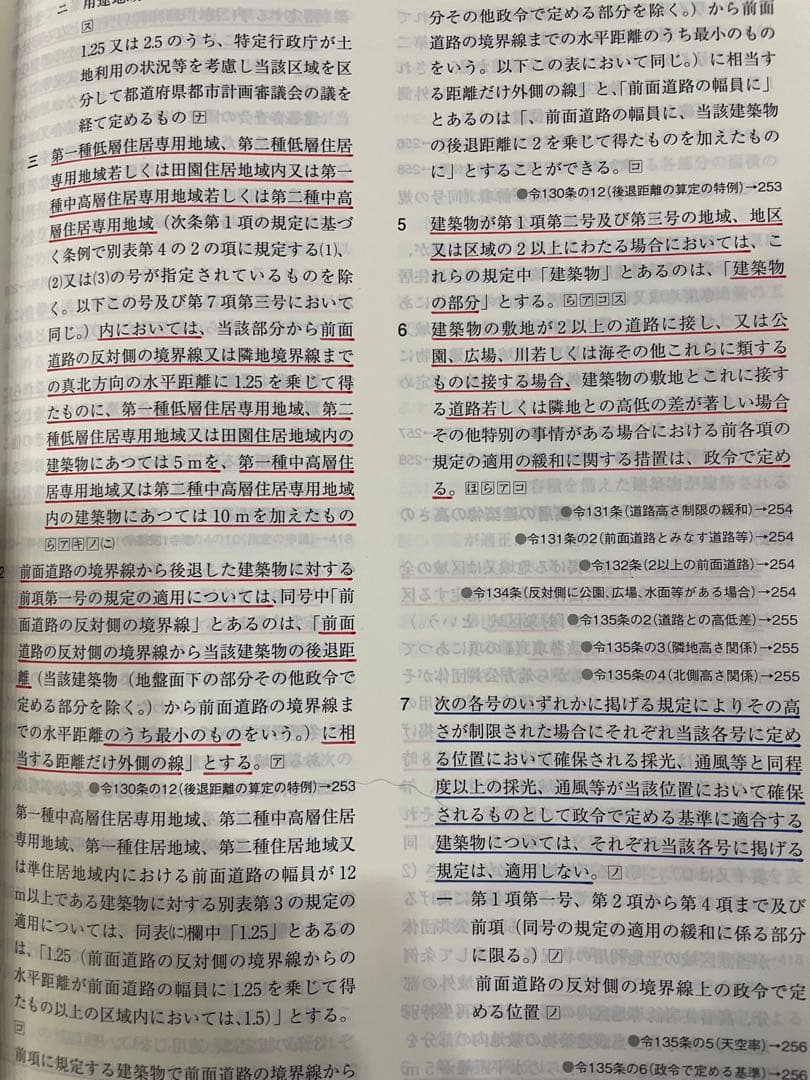 ニ 用途地域
ス
1.25又は2.5のうち、特定行政庁が土
地利用の状況等を考慮し当該区域を区
分して都道府県都市計画審議会の議を
経て定めるもの ナ
三 第一種低層住居専用地域、第二種低層住居
専用地域若しくは田園住居地域内又は第一
種中高層住居専用地域若しくは第二種中高
層住居専用地域（次条第1項の規定に基づ
く条例で別表第4の2の項に規定する(1)、
(2)又は(3)の号が指定されているものを除
く。以下この号及び第7項第三号において
同じ。）内においては、当該部分から前面
道路の反対側の境界線又は隣地境界線まで
の真北方向の水平距離に1.25を乗じて得
たものに、第一種低層住居専用地域、第二
種低層住居専用地域又は田園住居地域内の
建築物にあつては5mを、第一種中高層住
居専用地域又は第二種中高層住居専用地域
内の建築物にあつては10mを加えたもの
らアキノ(こ)
2 前面道路の境界線から後退した建築物に対する
前項第一号の規定の適用については、同号中「前
面道路の反対側の境界線」とあるのは、「前面
道路の反対側の境界線から当該建築物の後退距
離（当該建築物（地盤面下の部分その他政令で
定める部分を除く。）から前面道路の境界線ま
での水平距離のうち最小のものをいう。）に相
当する距離だけ外側の線」とする。ア
●令130条の12（後退距離の算定の特例）→253
第一種中高層住居専用地域、第二種中高層住居
専用地域、第一種住居地域、第二種住居地域又
は準住居地域内における前面道路の幅員が12
m以上である建築物に対する別表第3の規定の
適用については、同表(に)欄中「1.25」とあるの
は、「1.25（前面道路の反対側の境界線からの
水平距離が前面道路の幅員に1.25を乗じて得
たもの以上の区域内においては、1.5）」とする。
コ
前項に規定する建築物で前面道路の境界線から
分その他政令で定める部分を除く。）から前面
道路の境界線までの水平距離のうち最小のもの
をいう。以下この表において同じ。）に相当す
る距離だけ外側の線」と、「前面道路の幅員に」
とあるのは「、前面道路の幅員に、当該建築物
の後退距離に2を乗じて得たものを加えたもの
に」とすることができる。コ
●令130条の12（後退距離の算定の特例）→253
5 建築物が第1項第二号及び第三号の地域、地区
又は区域の2以上にわたる場合においては、こ
れらの規定中「建築物」とあるのは、「建築物
の部分」とする。らアコス
6 建築物の敷地が2以上の道路に接し、又は公
園、広場、川若しくは海その他これらに類する
ものに接する場合、建築物の敷地とこれに接す
る道路若しくは隣地との高低の差が著しい場合
その他特別の事情がある場合における前各項の
規定の適用の緩和に関する措置は、政令で定め
る。ほらアコ
●令131条（道路高さ制限の緩和）→254
●令131条の2（前面道路とみなす道路等）→254
●令132条（2以上の前面道路）→254
●令134条（反対側に公園、広場、水面等がある場合）→254
●令135条の2（道路との高低差）→255
●令135条の3（隣地高さ関係）→255
●令135条の4（北側高さ関係）→255
7 次の各号のいずれかに掲げる規定によりその高
さが制限された場合にそれぞれ当該各号に定め
る位置において確保される採光、通風等と同程
度以上の採光、通風等が当該位置において確保
されるものとして政令で定める基準に適合する
建築物については、それぞれ当該各号に掲げる
規定は、適用しない。ノ
一 第1項第一号、第2項から第4項まで及び
前項（同号の規定の適用の緩和に係る部分
に限る。）ノ
前面道路の反対側の境界線上の政令で定
める位置 ノ
●令135条の5（天空率）→256
●令135条の6（政令で定める基準）→256